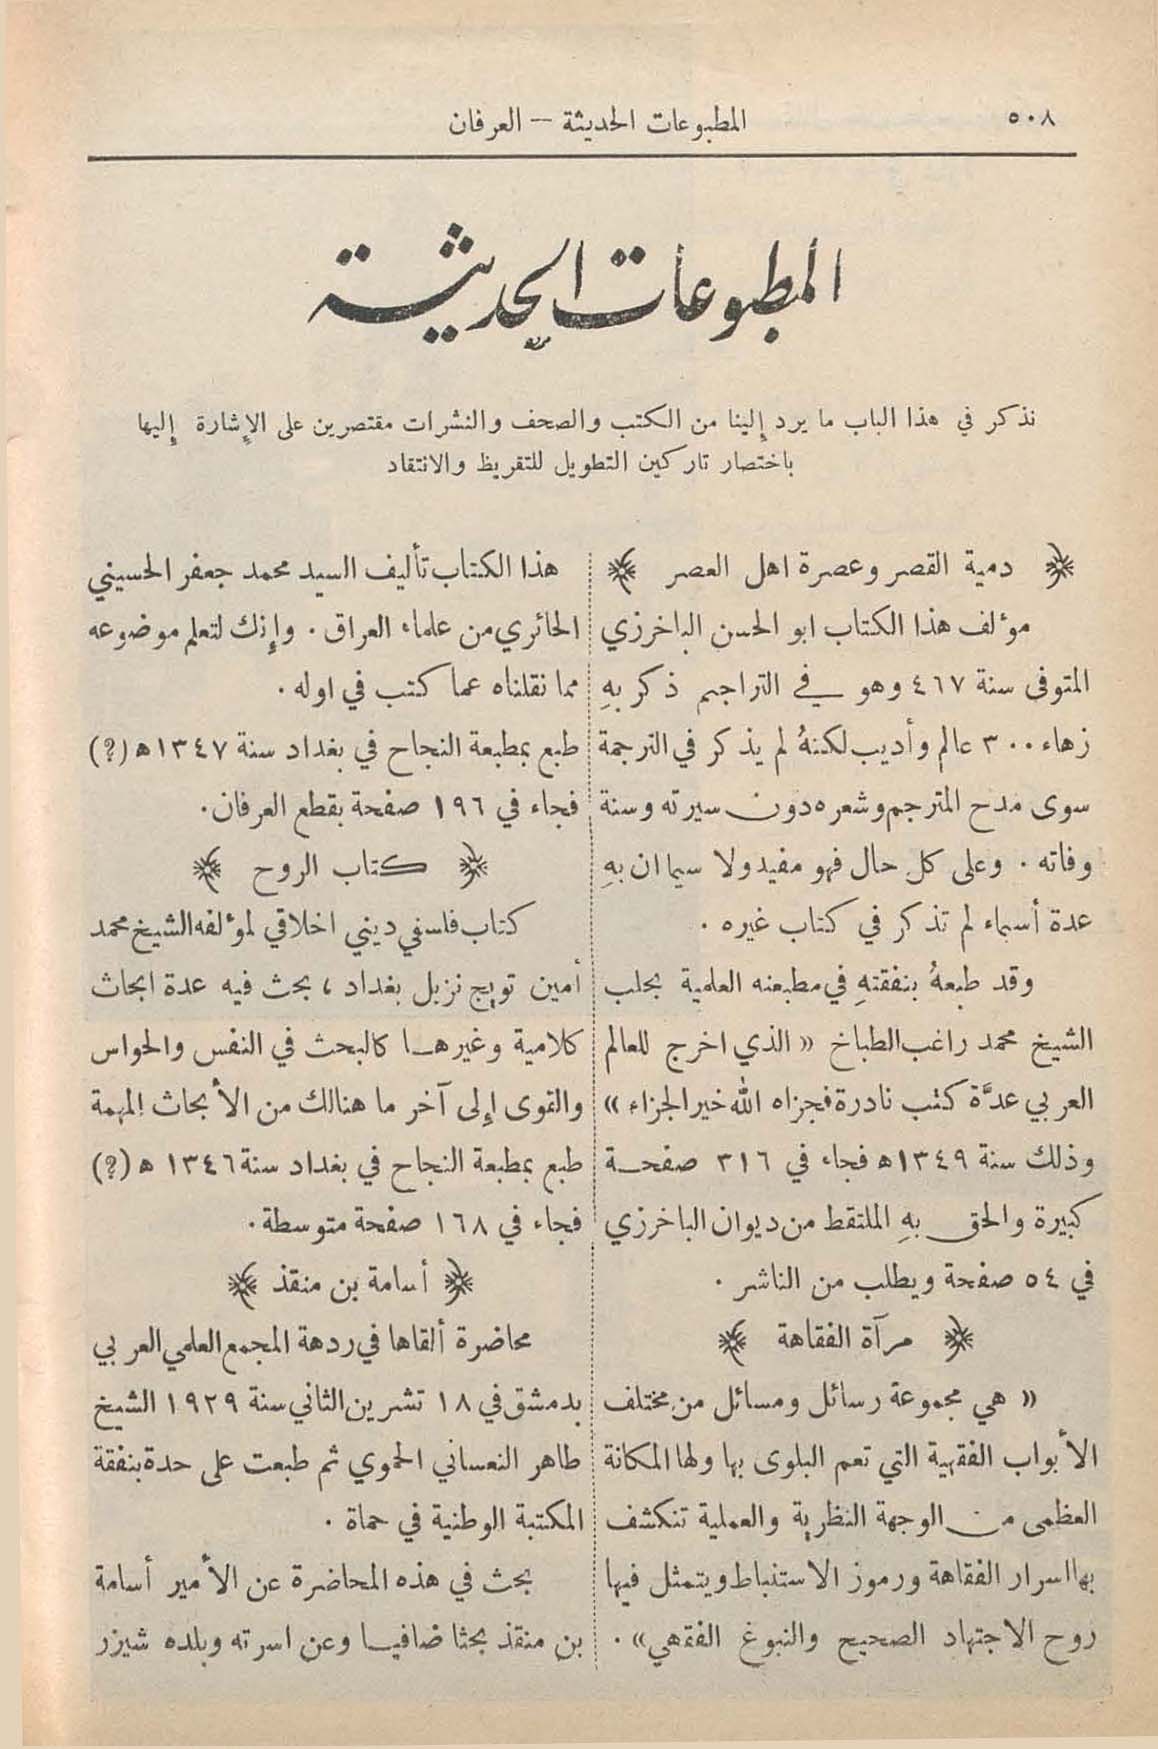 ٥٠٨
المطبوعات الحديثة — العرفان
المطبوعات الحديثة
نذكر في هذا الباب ما يرد إلينا من الكتب والصحف والنشرات مقتصرين على الإشارة إليها
باختصار تاركين التطويل للتقريظ والانتقاد
﴿ دمية القصر وعصرة اهل العصر ﴾
موٴلف هذا الكتاب ابو الحسن الباخرزي
المتوفى سنة ٤٦٧ وهو في التراجم ذكر بهِ
زهاء ٣٠٠ عالم وأديب لكنهُ لم يذكر في الترجمة
سوى مدح المترجم وشعره دون سيرته وسنة
وفاته . وعلى كل حال فهو مفيد ولا سيما ان بهِ
عدة أسماء لم تذكر في كتاب غيره .
وقد طبعهُ بنفقتهِ في مطبعته العلمية بحلب
الشيخ محمد راغب الطباخ « الذي اخرج للعالم
العربي عدَّة كتب نادرة فجزاه الله خير الجزاء »
وذلك سنة ١٣٤٩ھ فجاء في ٣١٦ صفحة
كبيرة والحق بهِ الملتقط من ديوان الباخرزي
في ٥٤ صفحة ويطلب من الناشر .
﴿ مرآة الفقاهة ﴾
« هي مجموعة رسائل ومسائل من مختلف
الأبواب الفقهية التي تعم البلوى بها ولها المكانة
العظمى من الوجهة النظرية والعملية تنكشف
بها اسرار الفقاهة ورموز الاستنباط ويتمثل فيها
روح الاجتهاد الصحيح والنبوغ الفقهي» .
هذا الكتاب تأليف السيد محمد جعفر الحسيني
الحائري من علماء العراق . وإنك لتعلم موضوعه
مما نقلناه عما كتب في اوله .
طبع بمطبعة النجاح في بغداد سنة ١٣٤٧ھ (؟)
فجاء في ١٩٦ صفحة بقطع العرفان .
﴿ كتاب الروح ﴾
كتاب فلسفي ديني اخلاقي لموٴلفه الشيخ محمد
أمين تويج نزيل بغداد ، بحث فيه عدة ابحاث
كلامية وغيرها كالبحث في النفس والحواس
والقوى إلى آخر ما هنالك من الأبحاث المهمة
طبع بمطبعة النجاح في بغداد سنة ١٣٤٦ ھ (؟)
فجاء في ١٦٨ صفحة متوسطة .
﴿ أسامة بن منقذ ﴾
محاضرة ألقاها في ردهة المجمع العلمي العربي
بدمشق في ١٨ تشرين الثاني سنة ١٩٢٩ الشيخ
طاهر النعساني الحموي ثم طبعت على حدة بنفقة
المكتبة الوطنية في حماة .
بحث في هذه المحاضرة عن الأمير أسامة
بن منقذ بحثا ضافيا وعن اسرته وبلده شيزر